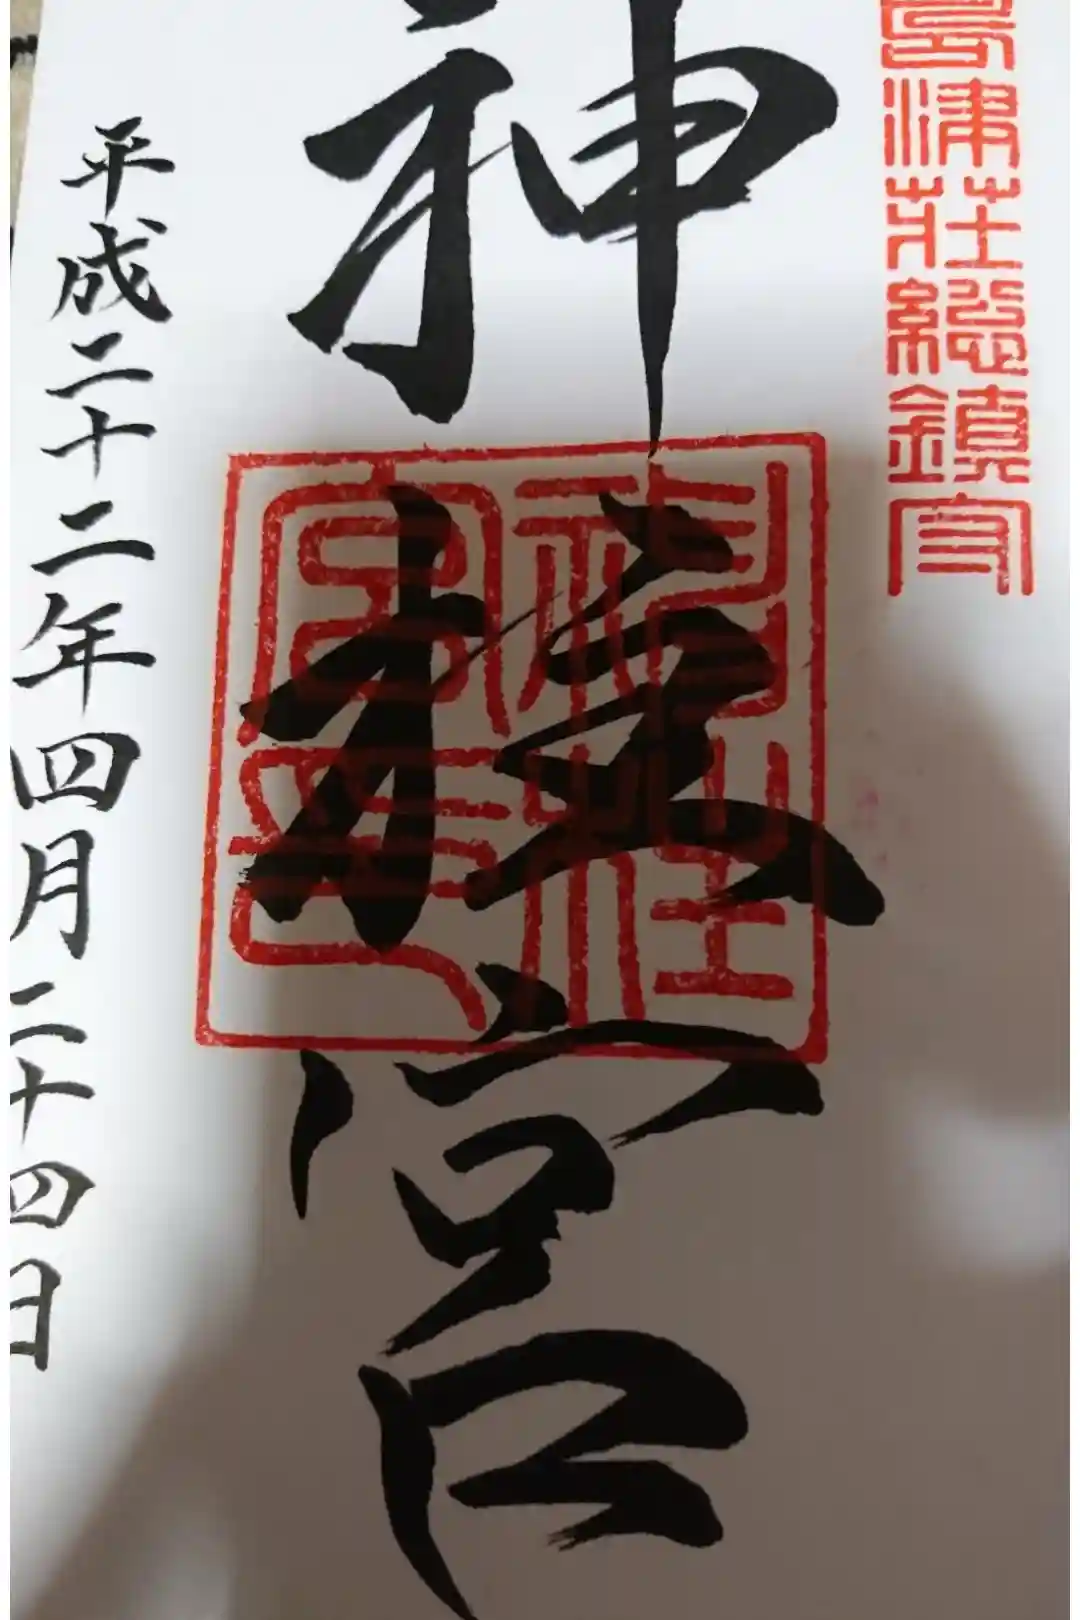 島津荘総鎮守
神柱宮
神柱宮印
平成二十二年四月二十四日